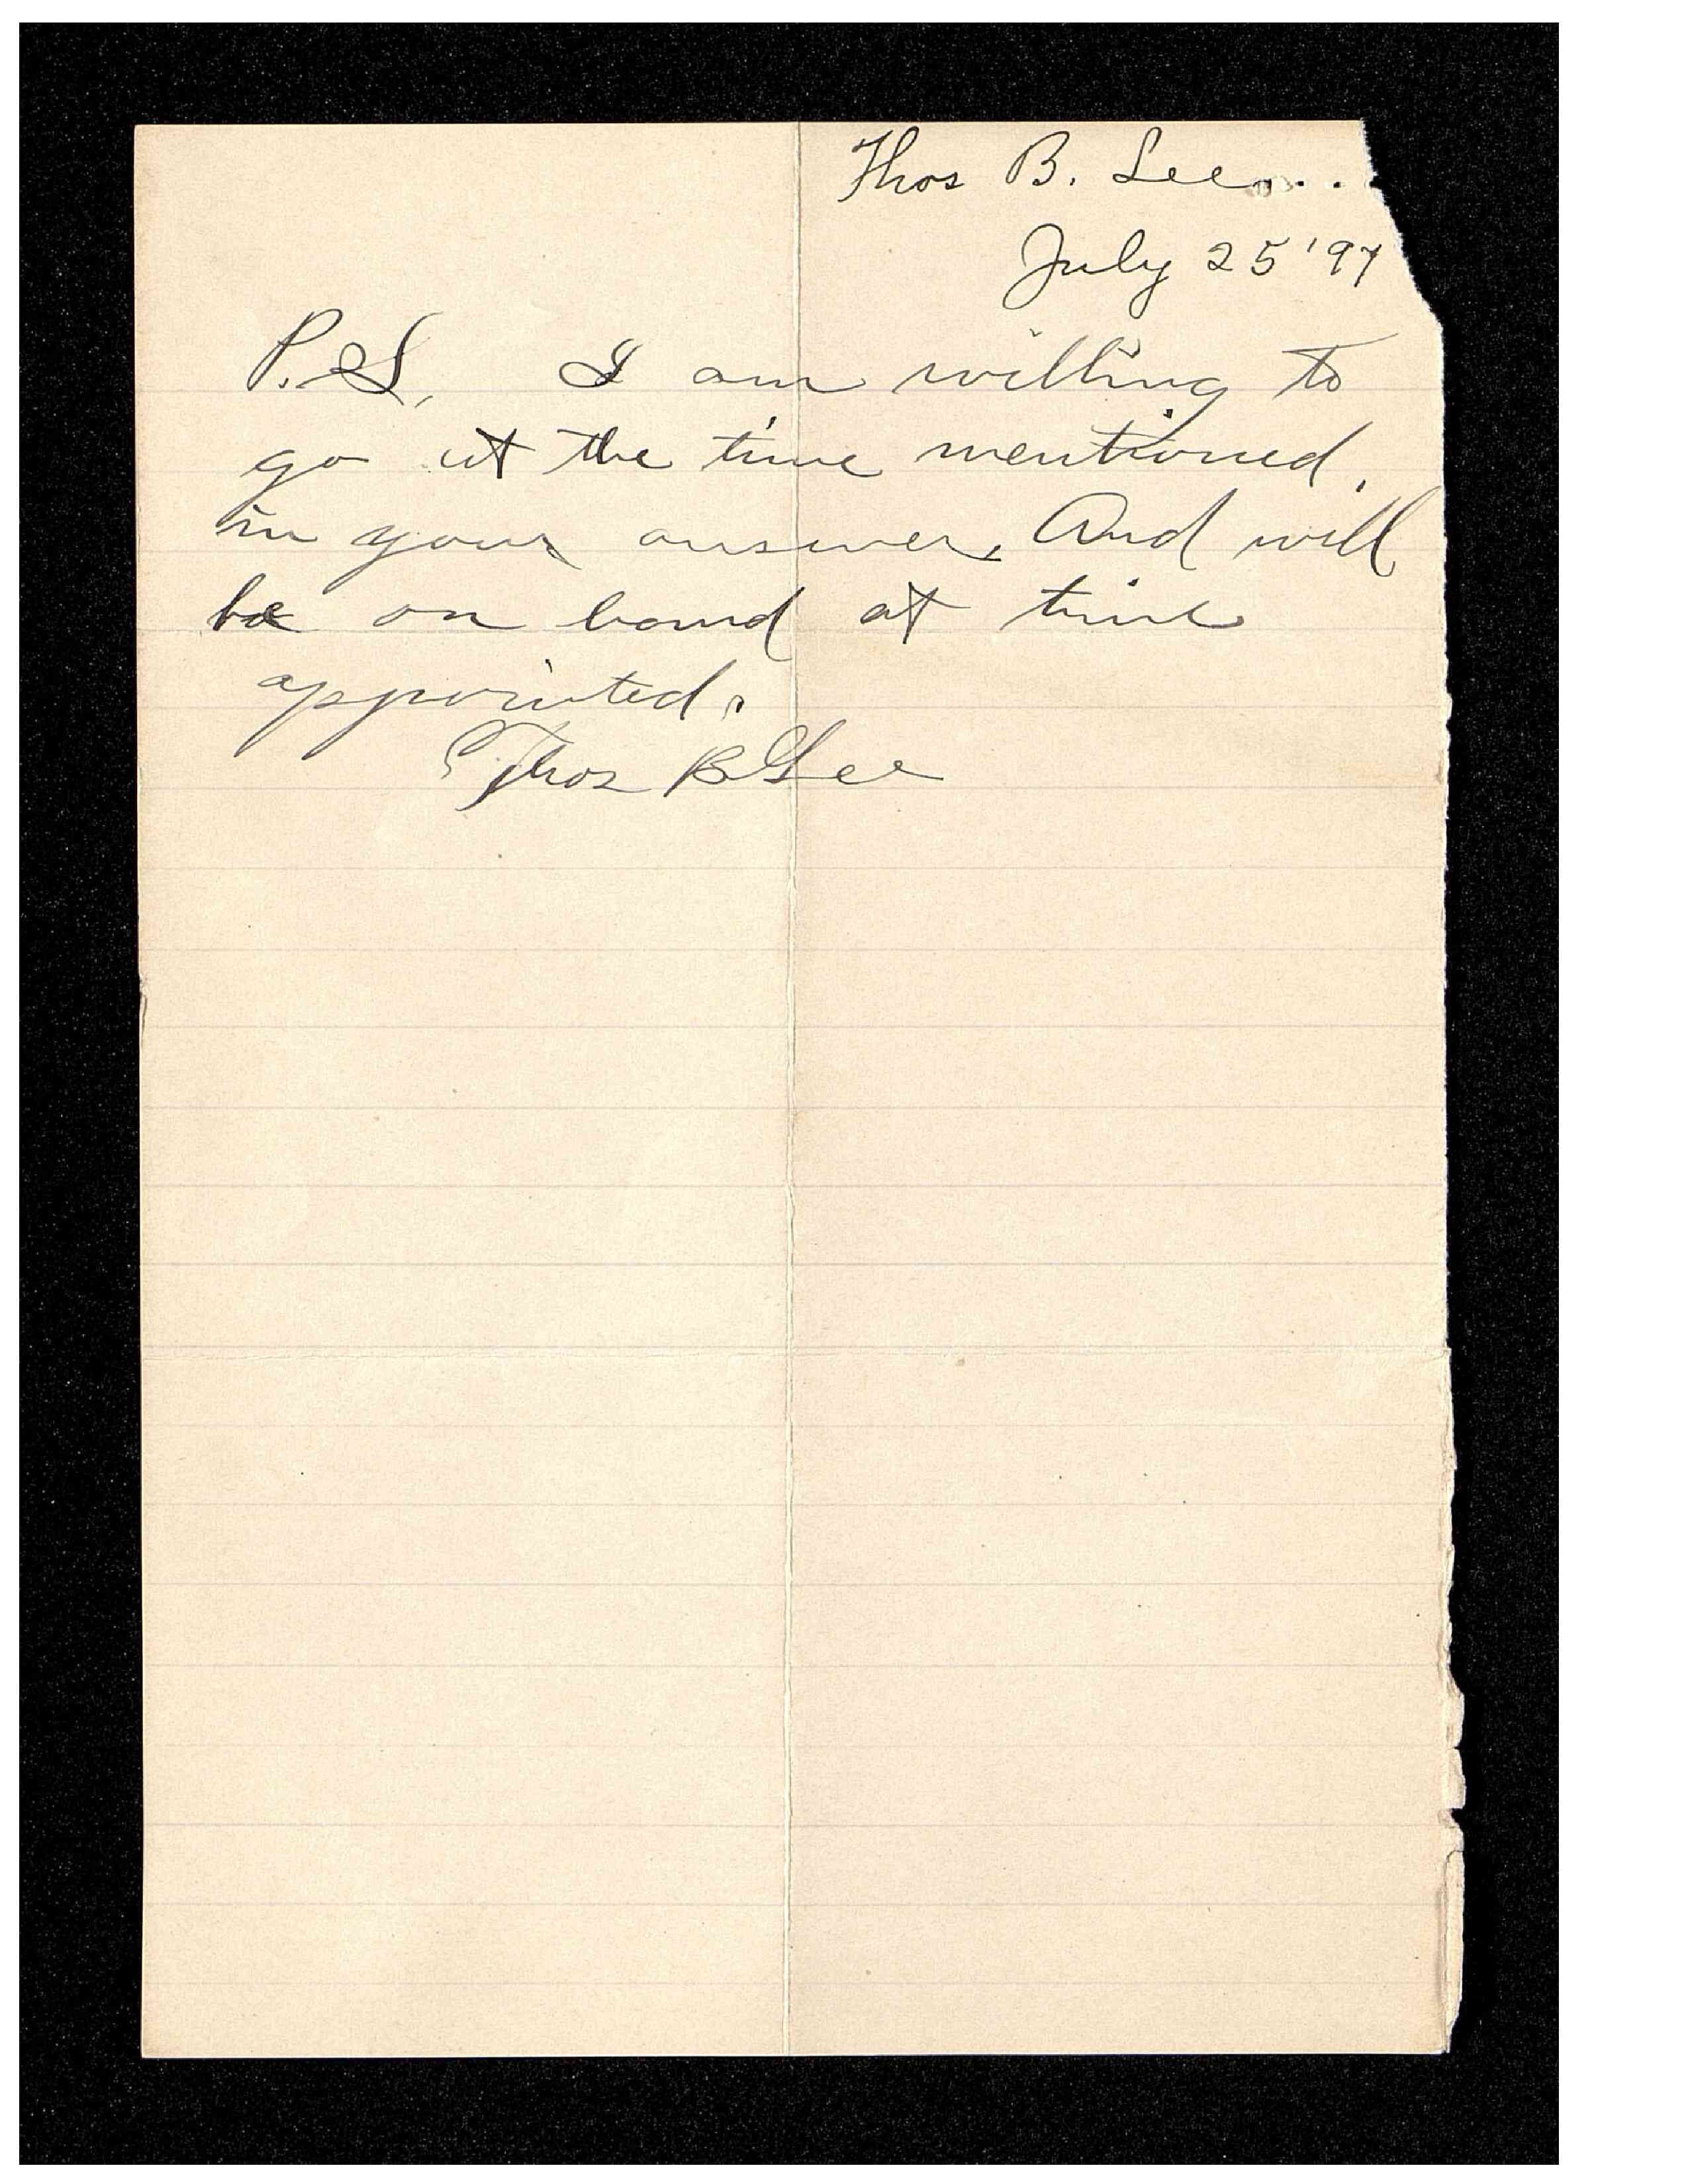 Thos B. Lee...
July 25 '97
P.S. I am willing to
go at the time mentioned,
in your answer. And will
be on hand at time
appointed.
Thos B Lee